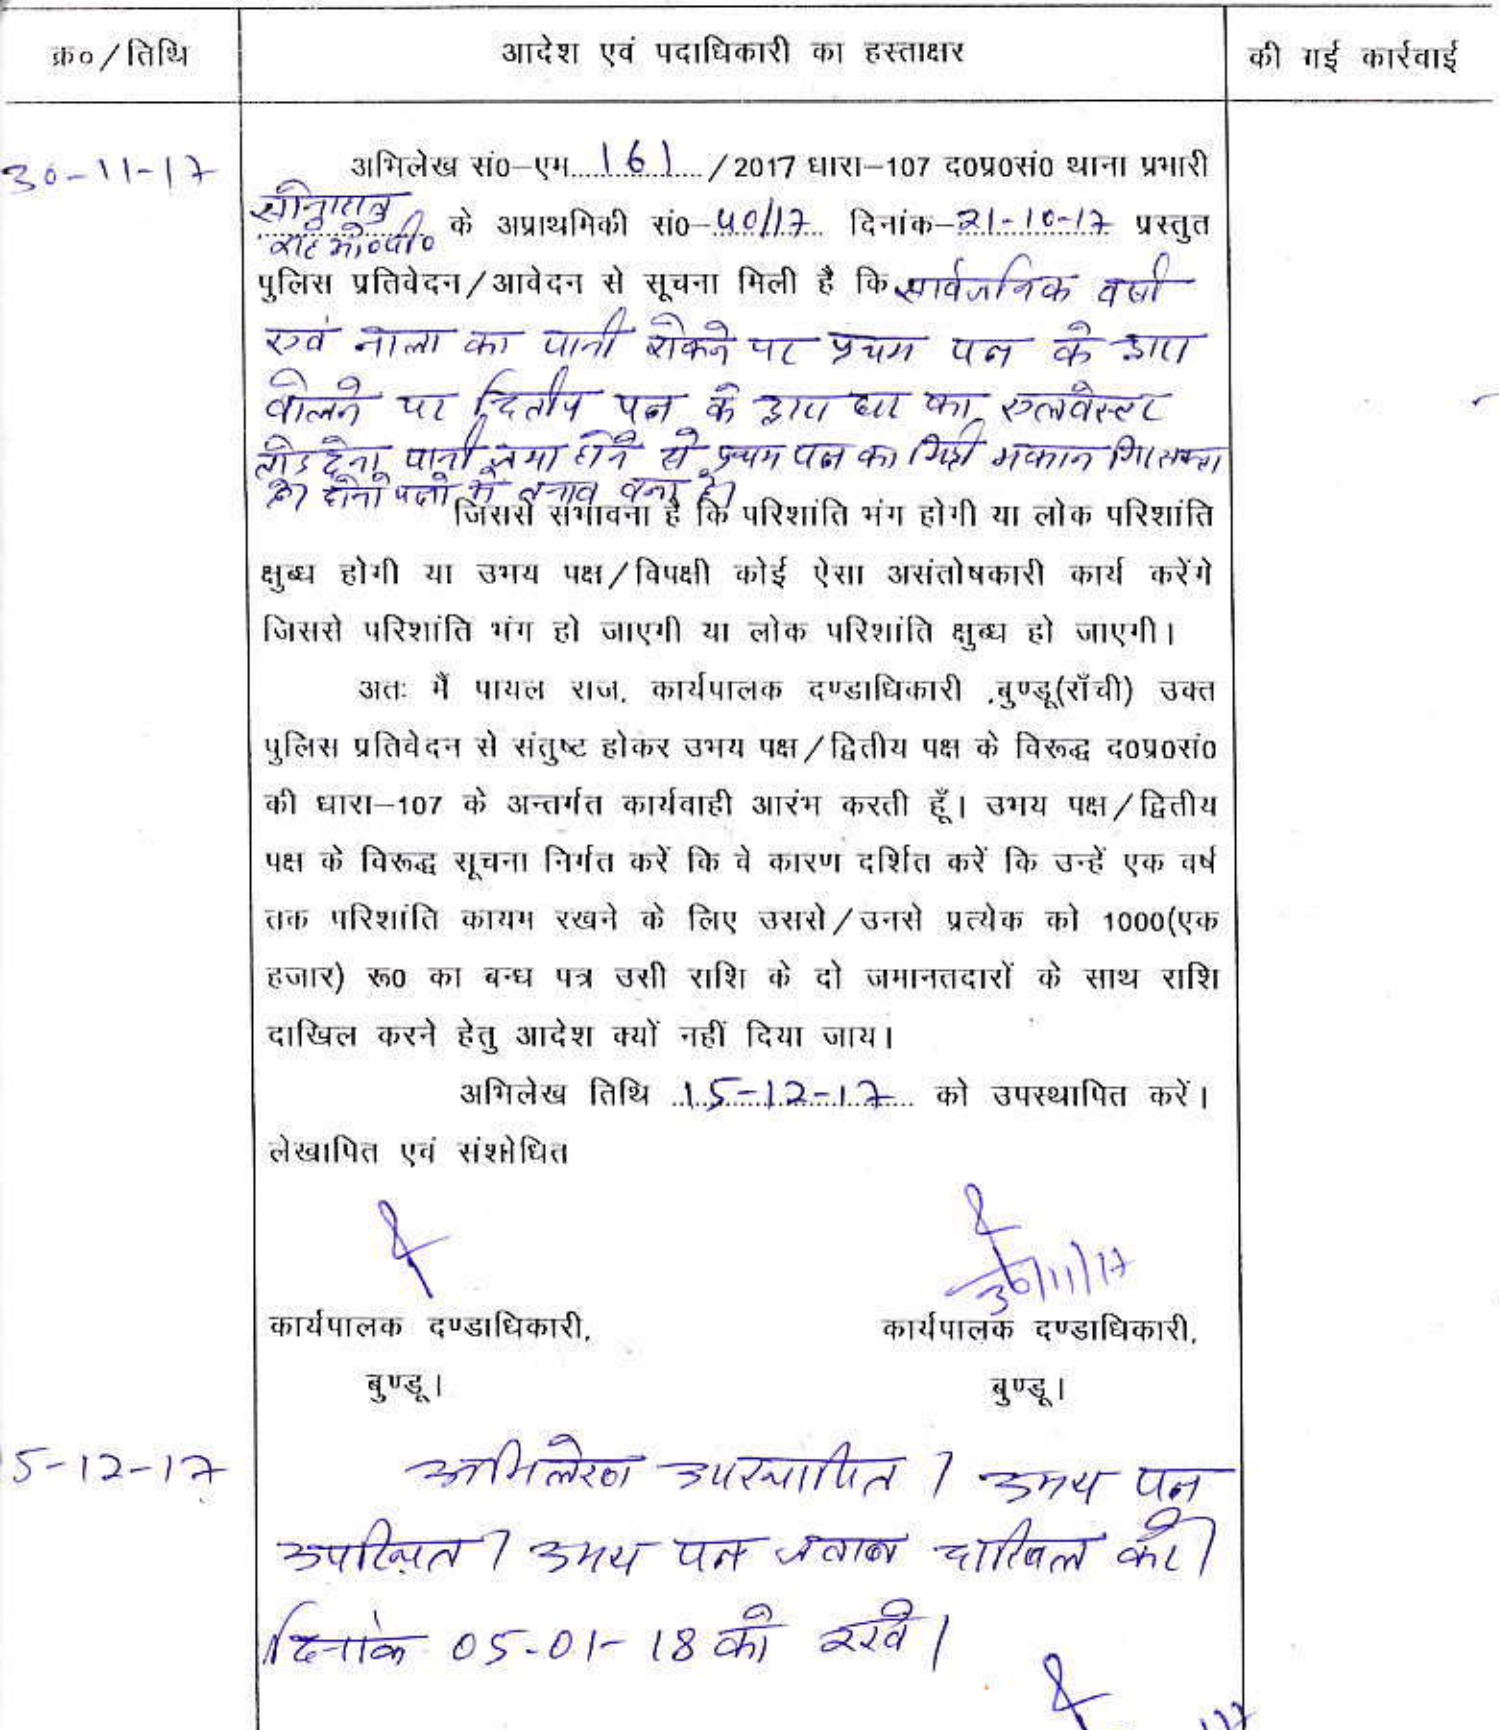 क्र०/तिथि आदेश एवं पदाधिकारी का हस्ताक्षर की गई कार्रवाई
30-11-17 अभिलेख सं०-एम 161 /2017 धारा-107 द०प्र०सं० थाना प्रभारी
सोनाहातु
राहे ओ०पी० के अप्राथमिकी सं०-40/17 दिनांक-21-10-17 प्रस्तुत
पुलिस प्रतिवेदन/आवेदन से सूचना मिली है कि सार्वजनिक वर्षा
एवं नाला का पानी रोकने पर प्रथम पक्ष के द्वारा
बोलने पर द्वितीय पक्ष के द्वारा घर का एलवेस्टर
तोड़ देना, पानी जमा होने से प्रथम पक्ष का मिट्टी मकान गिर सकता
है। दोनो पक्षो में तनाव बना है।
जिससे संभावना है कि परिशांति भंग होगी या लोक परिशांति
क्षुब्ध होगी या उभय पक्ष/विपक्षी कोई ऐसा असंतोषकारी कार्य करेंगे
जिससे परिशांति भंग हो जाएगी या लोक परिशांति क्षुब्ध हो जाएगी।
अतः मैं पायल राज, कार्यपालक दण्डाधिकारी ,बुण्डू(राँची) उक्त
पुलिस प्रतिवेदन से संतुष्ट होकर उभय पक्ष/द्वितीय पक्ष के विरूद्ध द०प्र०सं०
की धारा-107 के अन्तर्गत कार्यवाही आरंभ करती हूँ। उभय पक्ष/द्वितीय
पक्ष के विरूद्ध सूचना निर्गत करें कि वे कारण दर्शित करें कि उन्हें एक वर्ष
तक परिशांति कायम रखने के लिए उससे/उनसे प्रत्येक को 1000(एक
हजार) रू० का बन्ध पत्र उसी राशि के दो जमानतदारों के साथ राशि
दाखिल करने हेतु आदेश क्यों नहीं दिया जाय।
अभिलेख तिथि 15-12-17 को उपस्थापित करें।
लेखापित एवं संशोधित
30/11/17
कार्यपालक दण्डाधिकारी, कार्यपालक दण्डाधिकारी,
बुण्डू। बुण्डू।
5-12-17 अभिलेख उपस्थापित। उभय पक्ष
उपस्थित। उभय पक्ष जवाब दाखिल करें।
दिनांक 05-01-18 को रखें।